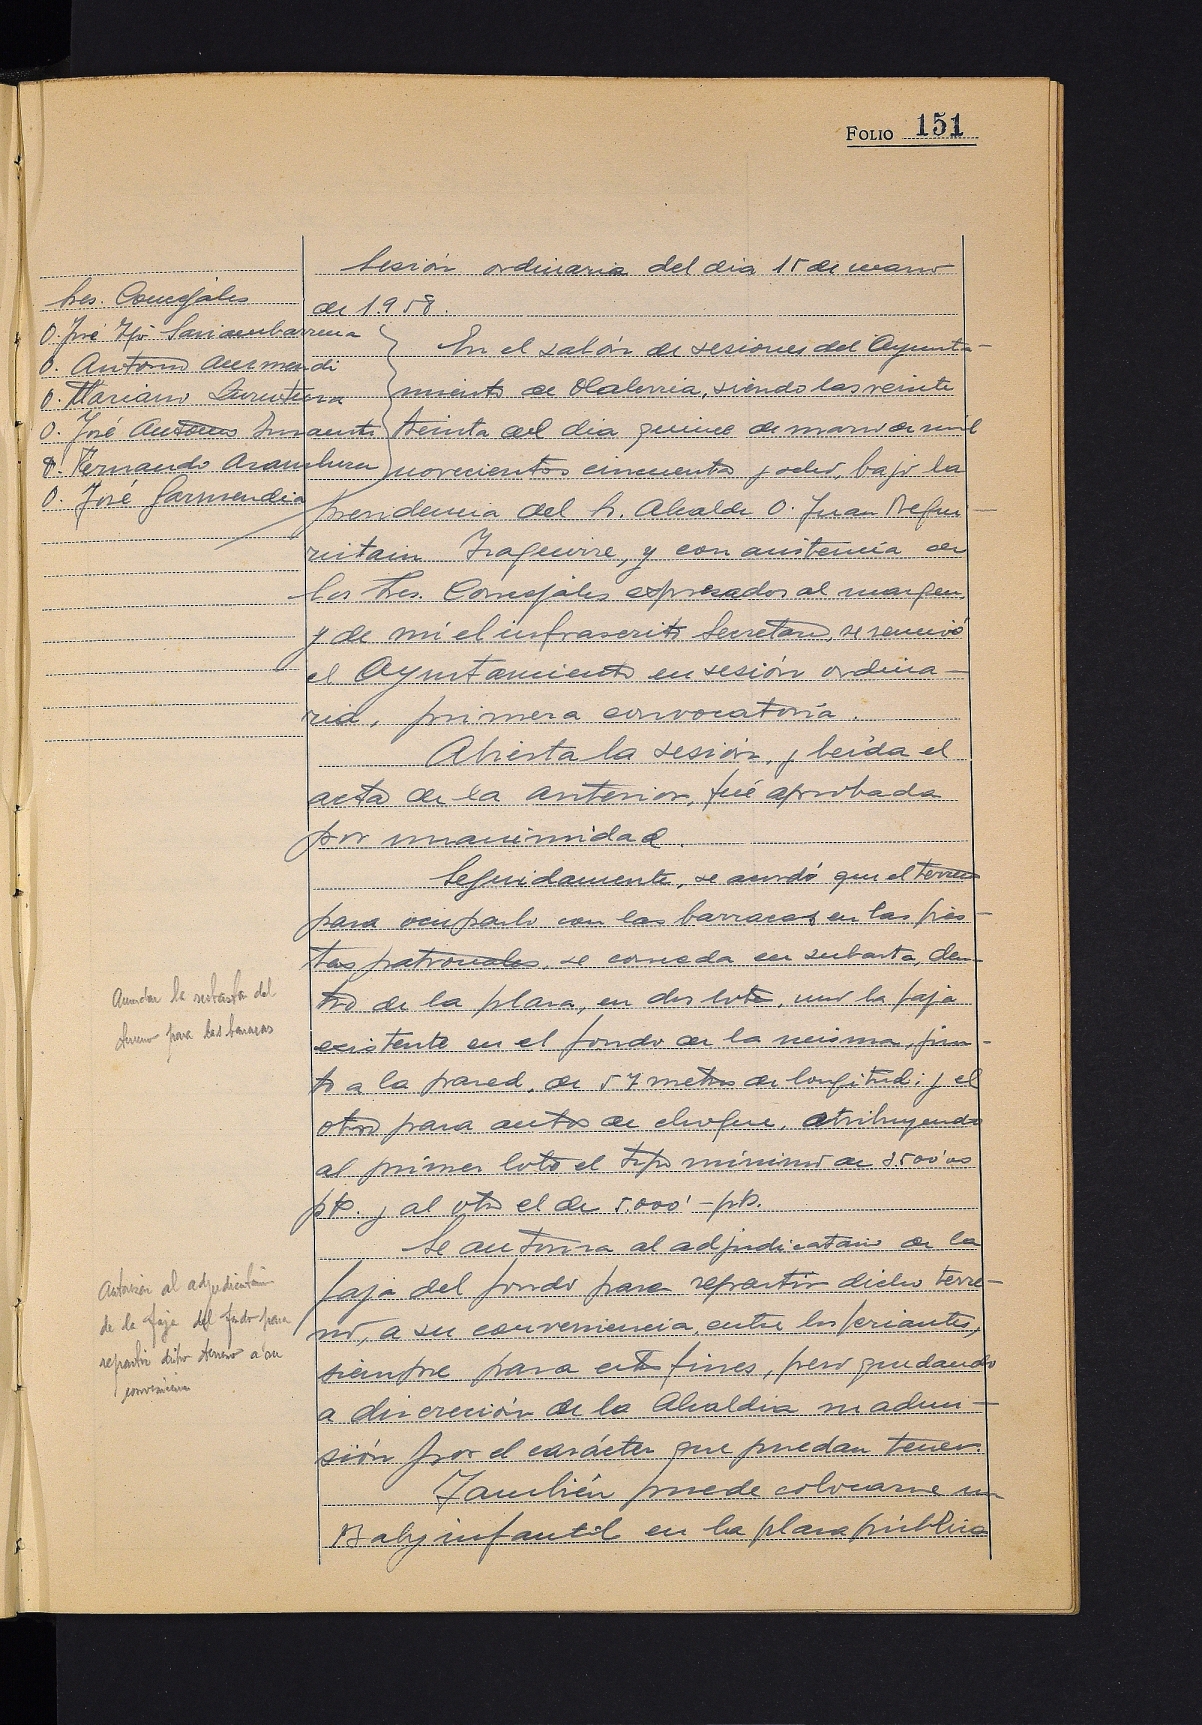 FOLIO 151
Sesión ordinaria del dia 15 de marzo
de 1.958.
Sres. Concejales
D. José
D. Antonio Aurmendi
D. Mariano
D. José Antonio Insausti
D. Fernando Aramburu
D. José Garmendia
En el salón de sesiones del Ayunta-
miento de Olaberria, siendo las veinte
treinta del dia quince de marzo de mil
novecientos cincuenta y ocho, bajo la
presidencia del Sr. Alcalde D. Juan Begui-
ristain Izaguirre, y con asistencia de
los Sres. Concejales expresados al margen,
y de mí el infrascrito Secretario, se reunió
el Ayuntamiento en sesión ordina-
ria, primera convocatoria.
Abierta la sesión, y leída el
acta de la anterior, fué aprobada
por unanimidad.
Seguidamente, se acordó que el terreno
para ocuparlo con las barracas en las fies-
tas patronales, se conceda en subasta, den-
tro de la plaza, en dos lotes, uno la faja
existente en el fondo de la misma, jun-
to a la pared, de 57 metros de longitud; y el
otro para autos de choque, atribuyendo
al primer lote el tipo mínimo de 3500'00
pts. y al otro el de 5.000'- pts.
Se autoriza al adjudicatario de la
faja del fondo para repartir dicho terre-
no, a su conveniencia, entre los feriantes,
siempre para estos fines, pero quedando
a discreción de la Alcaldia su admi-
sión por el carácter que puedan tener.
También puede colocarse un
Baby infantil en la plaza pública
Anunciar la subasta del
terreno para las barracas
Autorizar al adjudicatario
de la faja del fondo para
repartir dicho terreno a su
conveniencia